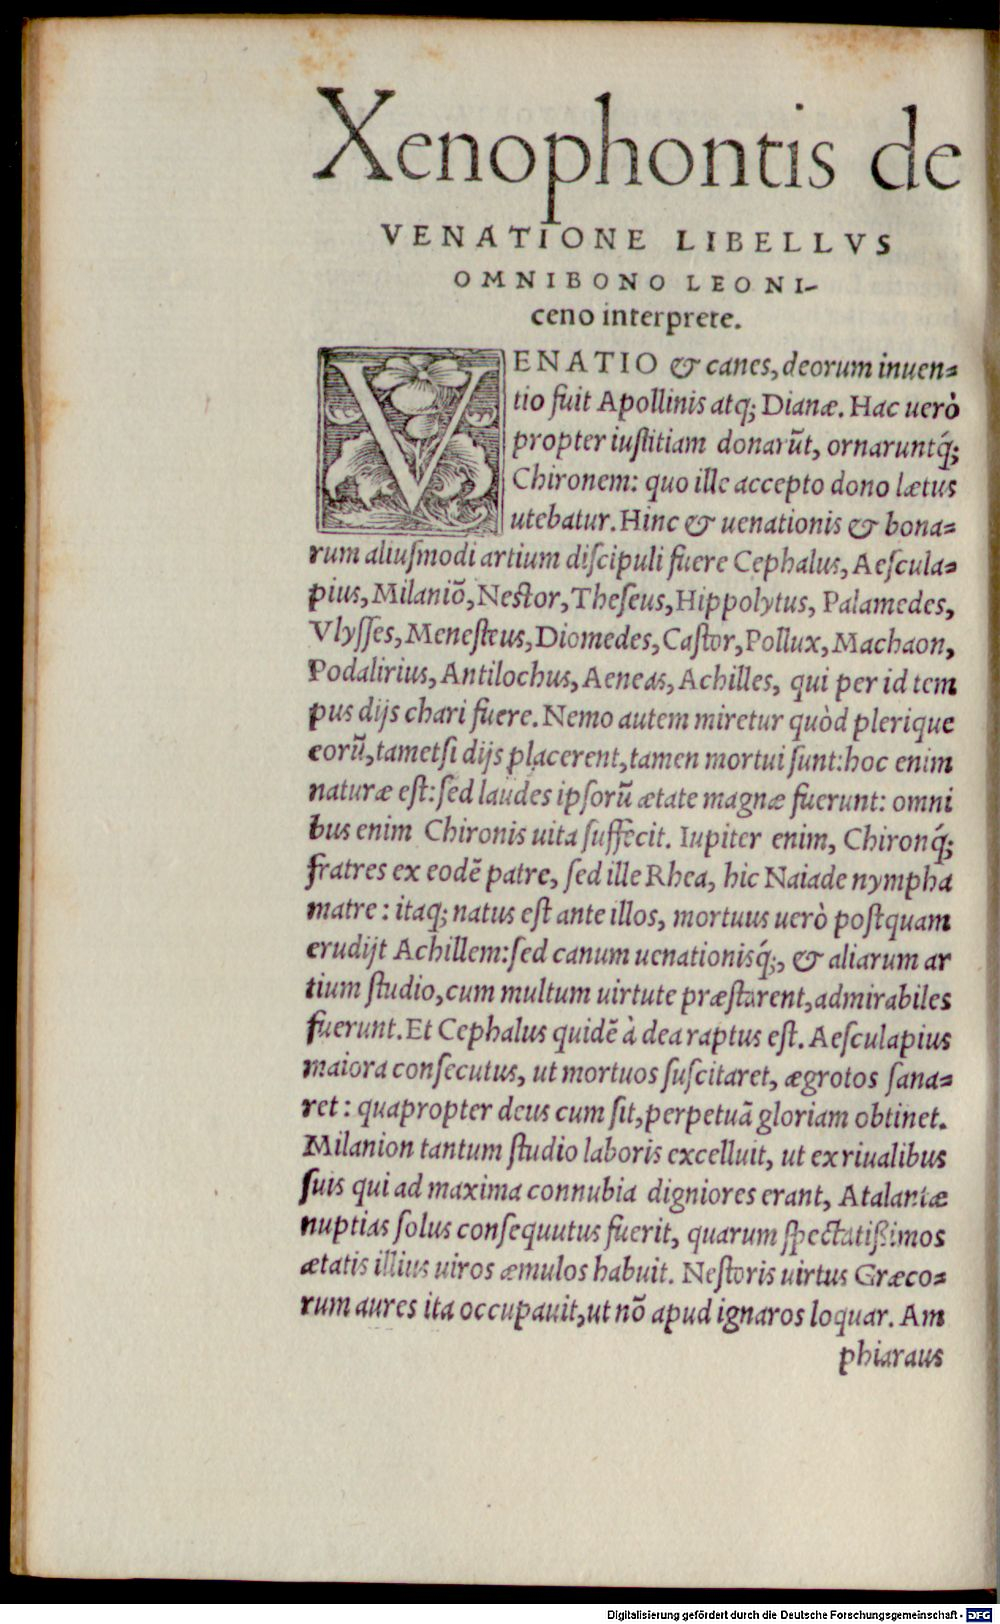 Xenophontis de
VENATIONE LIBELLVS
OMNIBONO LEONI-
ceno interprete.
VENATIO & canes, deorum inuen=
tio fuit Apollinis atq; Dianæ. Hac uerò
propter iuſtitiam donarũt, ornaruntq́;
Chironem: quo ille accepto dono lætus
utebatur. Hinc & uenationis & bona=
rum aliuſmodi artium diſcipuli fuere Cephalus, Aeſcula=
pius, Milaniõ, Neſtor, Theſeus, Hippolytus, Palamedes,
Vlyſſes, Meneſteus, Diomedes, Caſtor, Pollux, Machaon,
Podalirius, Antilochus, Aeneas, Achilles, qui per id tem
pus dijs chari fuere. Nemo autem miretur quòd plerique
eorũ, tametſi dijs placerent, tamen mortui ſunt: hoc enim
naturæ eſt: ſed laudes ipſorũ ætate magnæ fuerunt: omni
bus enim Chironis uita ſuffecit. Iupiter enim, Chironq́;
fratres ex eodẽ patre, ſed ille Rhea, hic Naiade nympha
matre: itaq; natus eſt ante illos, mortuus uerò poſtquam
erudijt Achillem: ſed canum uenationisq́;, & aliarum ar
tium ſtudio, cum multum uirtute præſtarent, admirabiles
fuerunt. Et Cephalus quidẽ à dea raptus eſt. Aeſculapius
maiora conſecutus, ut mortuos ſuſcitaret, ægrotos ſana=
ret: quapropter deus cum ſit, perpetuã gloriam obtinet.
Milanion tantum ſtudio laboris excelluit, ut ex riualibus
ſuis qui ad maxima connubia digniores erant, Atalantæ
nuptias ſolus conſequutus fuerit, quarum ſpectatißimos
ætatis illius uiros æmulos habuit. Neſtoris uirtus Græco=
rum aures ita occupauit, ut nõ apud ignaros loquar. Am
phiaraus
Digitalisierung gefördert durch die Deutsche Forschungsgemeinschaft - DFG